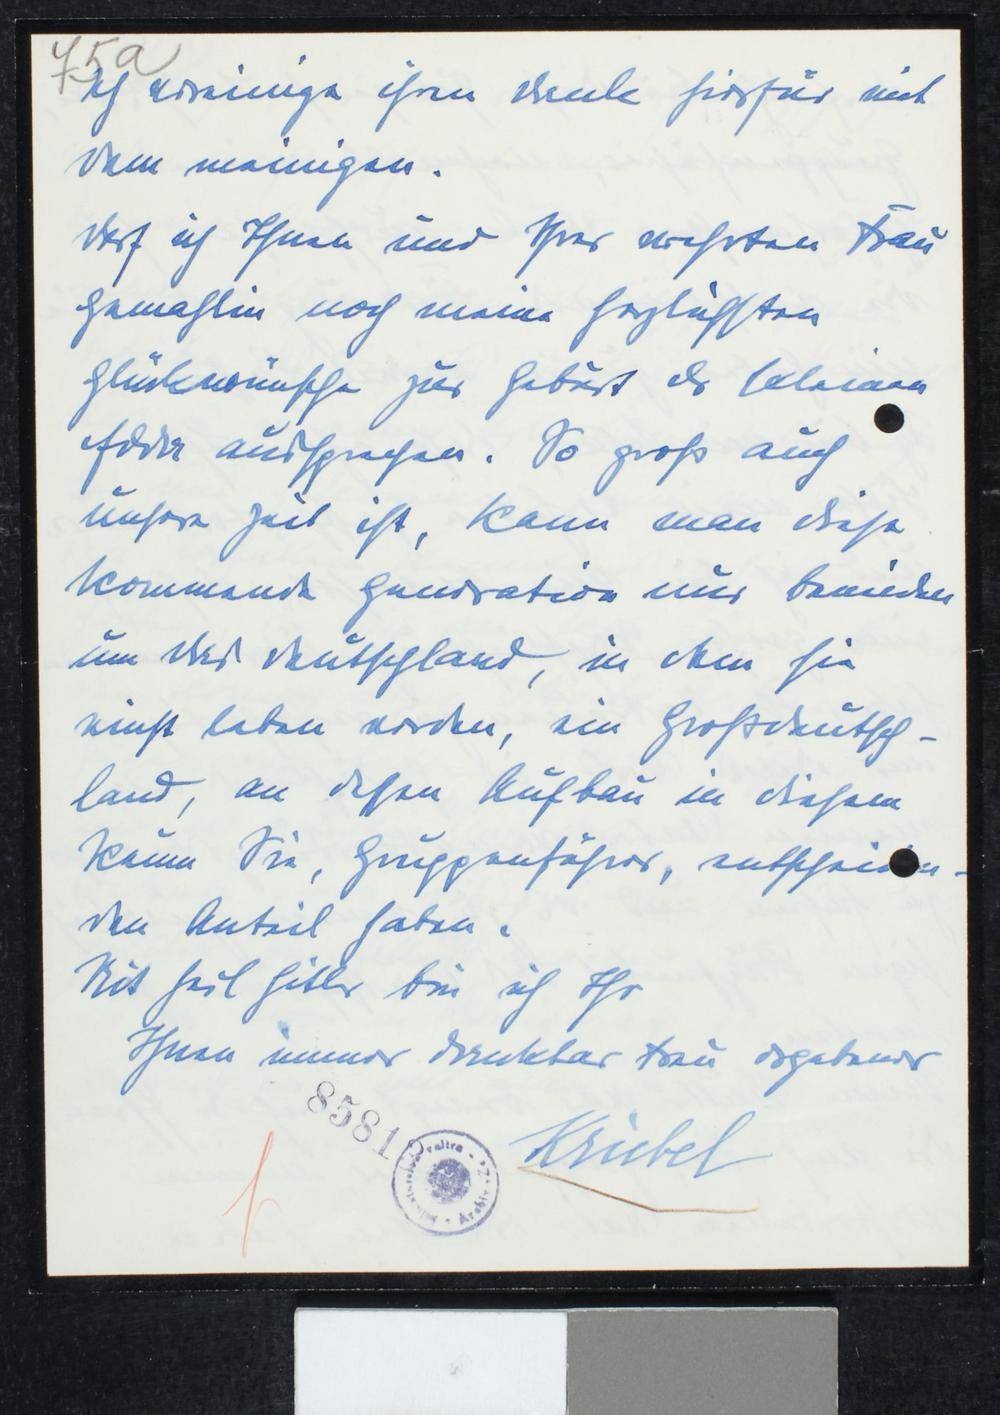 75a
Ich vereinige ihren Dank hierfür mit
dem meinigen.
Darf ich Ihnen und Ihrer verehrten Frau
Gemahlin noch meine herzlichsten
Glückwünsche zur Geburt der kleinen
Edda aussprechen. So groß auch
unsere Zeit ist, kann man diese
kommende Generation nur beneiden
um das Deutschland, in dem sie
einst leben werden, ein Großdeutsch-
land, an dessen Aufbau in diesem
Raum Sie, Gruppenführer, entscheiden-
den Anteil haben.
Mit Heil Hitler bin ich Ihr
Ihnen immer dankbar treu ergebener
Kriebel
8581
Archiv